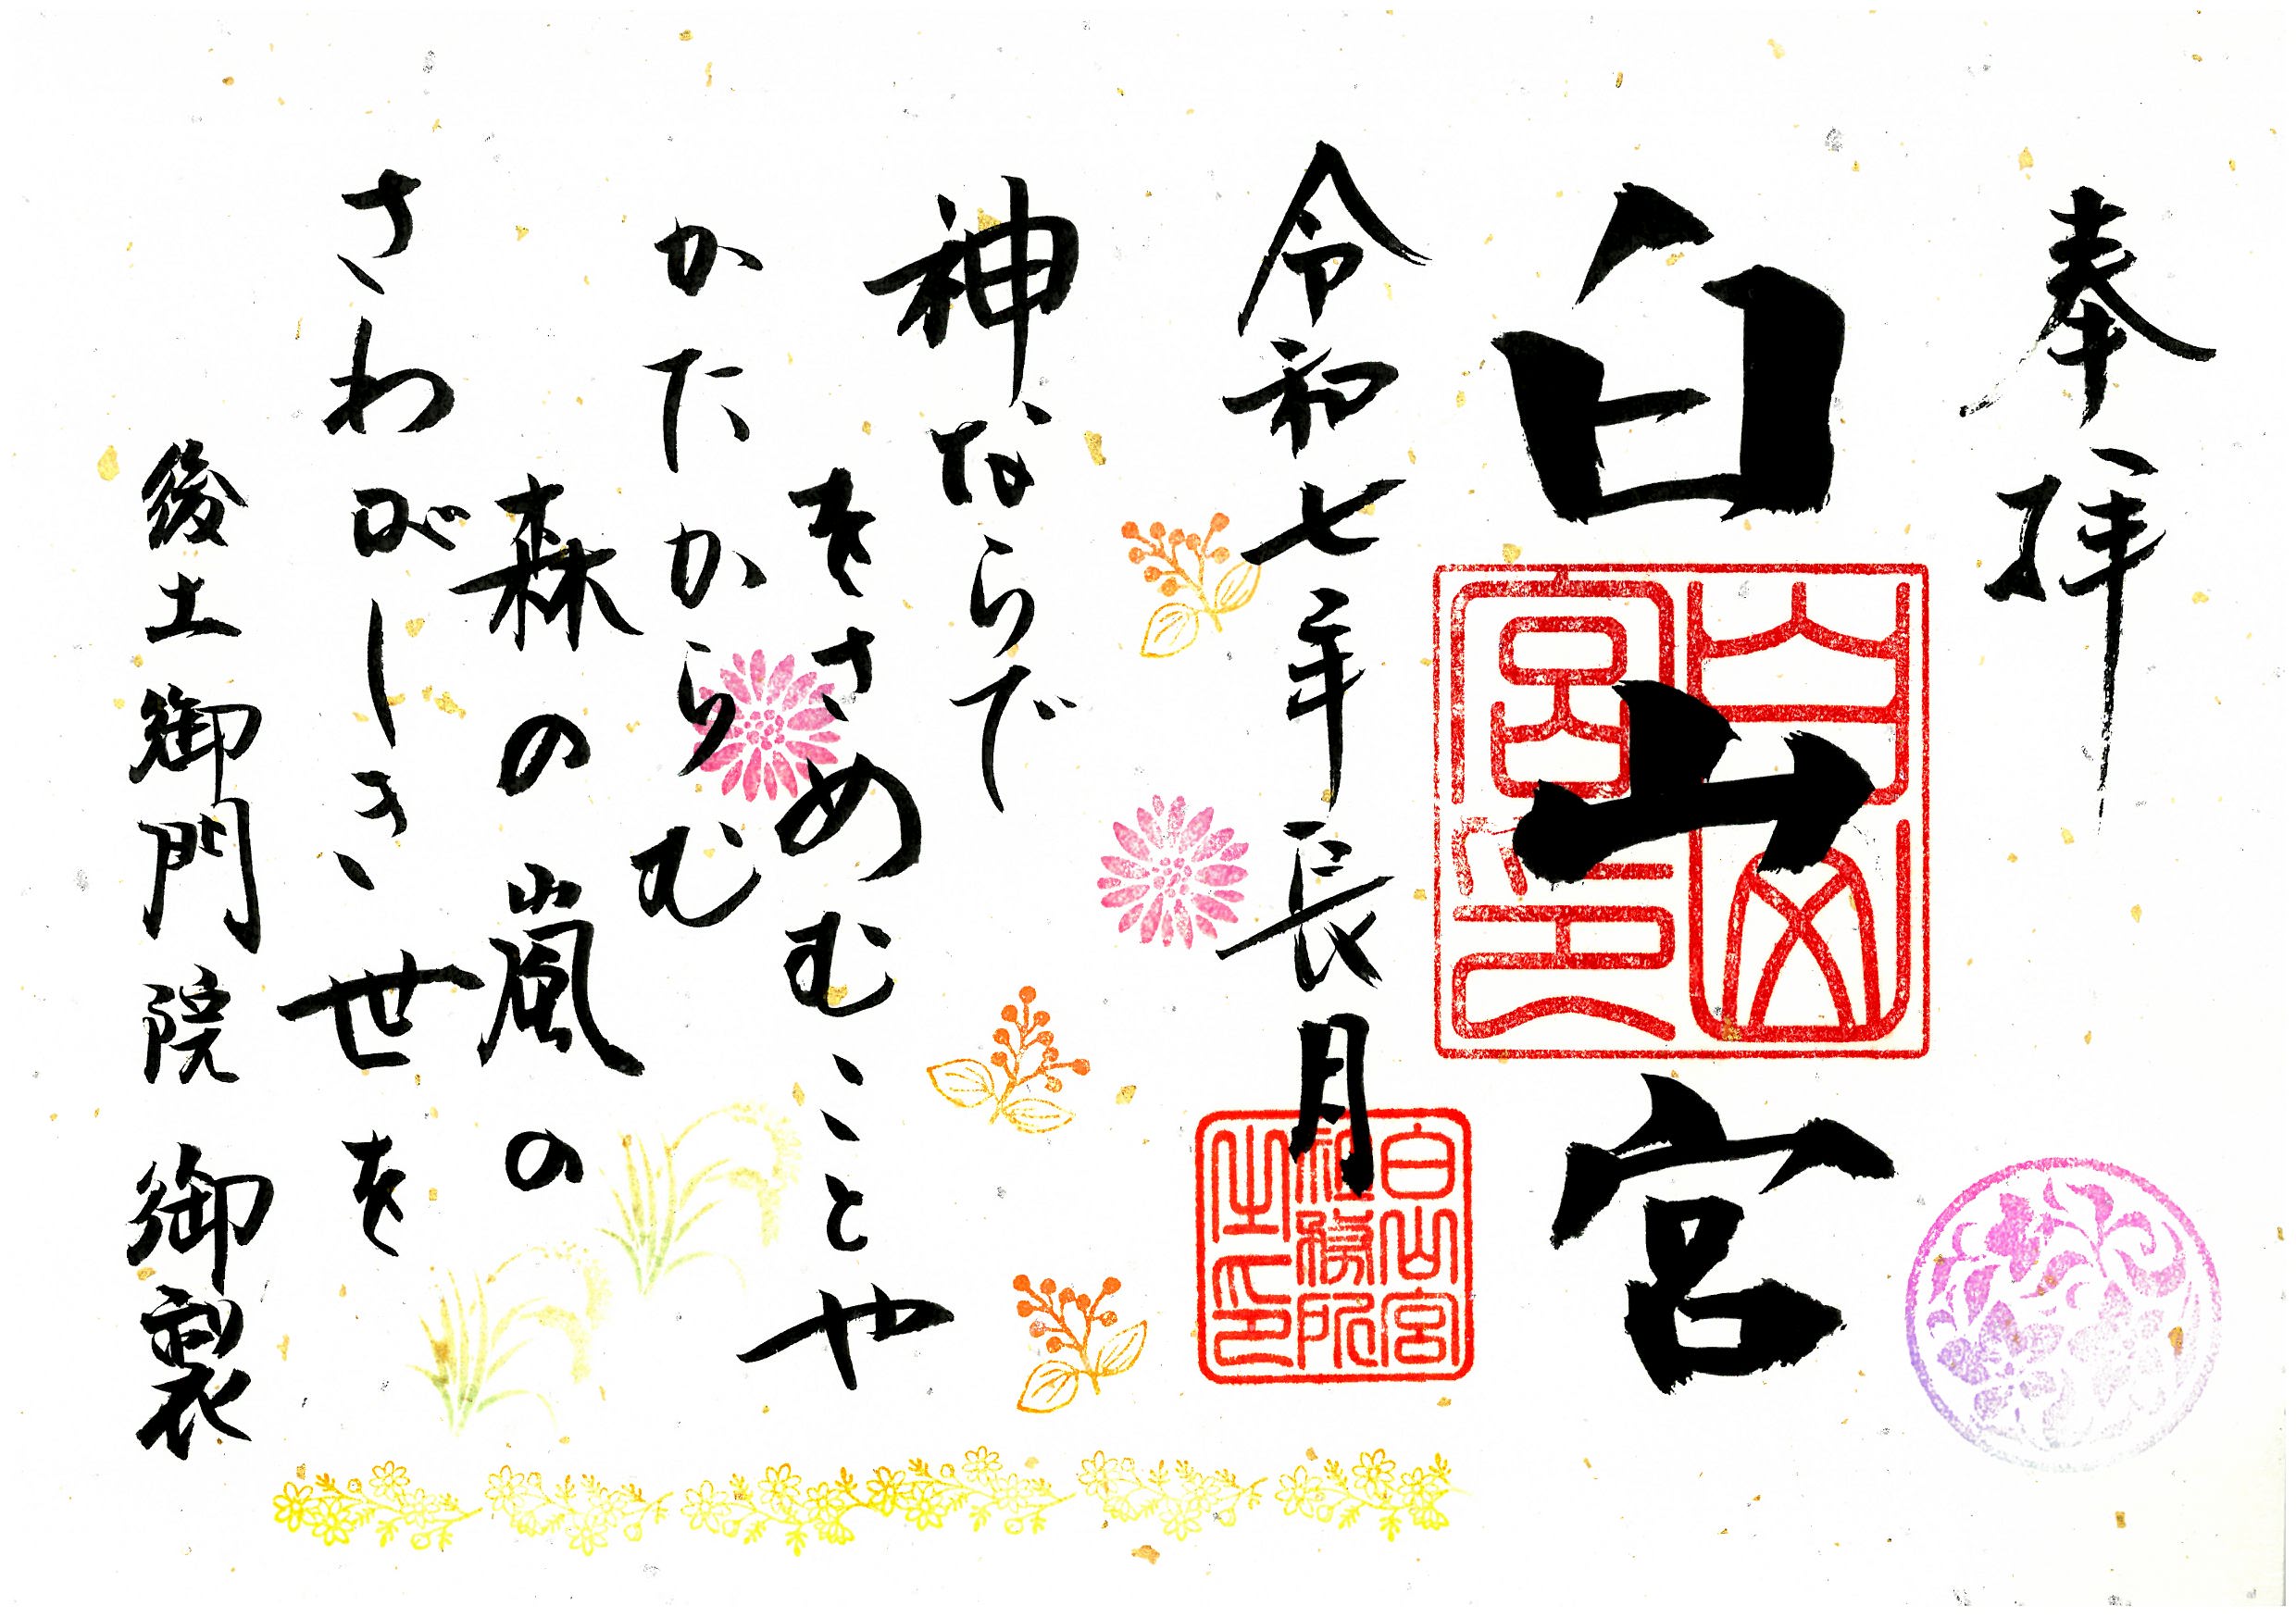 奉拝
白山宮
白山宮印
令和七年長月
白山宮社務所之印
神ならで
をさめむことや
かたからむ
森の嵐の
さわがしき世を
後土御門院 御製